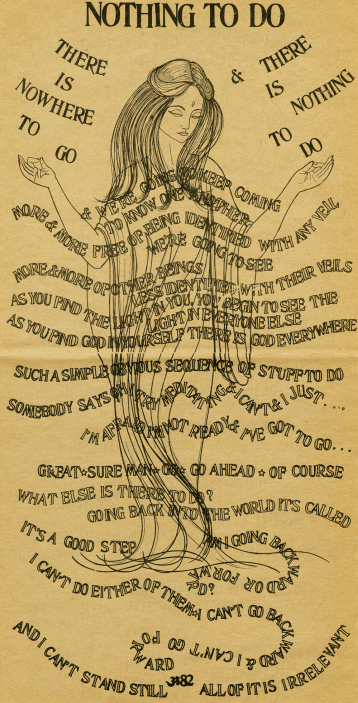 NOTHING TO DO
THERE
IS
NOWHERE
TO
GO
& THERE
IS
NOTHING
TO
DO
& WE'RE GOING TO KEEP COMING
TO KNOW ONE ANOTHER
MORE & MORE FREE OF BEING IDENTIFIED WITH ANY VEIL
WE'RE GOING TO SEE
MORE & MORE OF OTHER BEINGS
LESS IDENTIFIED WITH THEIR VEILS
AS YOU FIND THE LIGHT IN YOU, YOU BEGIN TO SEE THE
LIGHT IN EVERYONE ELSE
AS YOU FIND GOD IN YOURSELF THERE IS GOD EVERYWHERE
SUCH A SIMPLE OBVIOUS SEQUENCE OF STUFF TO DO
SOMEBODY SAYS OH I TRY MEDITATING & I CAN'T & I JUST....
I'M AFRAID I'M NOT READY & I'VE GOT TO GO...
GREAT ★ SURE MAN ★ GO ★ GO AHEAD ★ OF COURSE
WHAT ELSE IS THERE TO DO?
GOING BACK INTO THE WORLD IT'S CALLED
IT'S A GOOD STEP
AM I GOING BACKWARD OR FORWARD?
I CAN'T DO EITHER OF THEM
I CAN'T GO BACKWARD & I CAN'T GO FORWARD
AND I CAN'T STAND STILL
ALL OF IT IS IRRELEVANT
#82